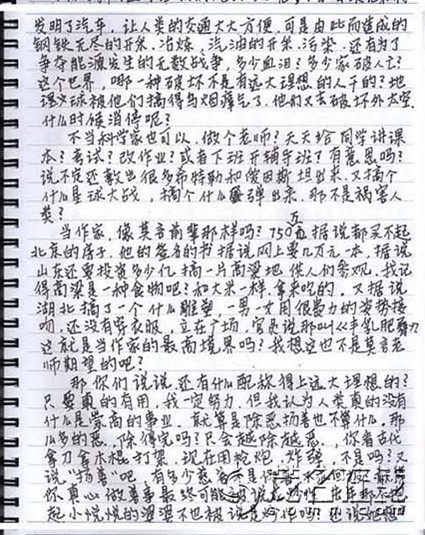 发明了汽车，让人类的交通大大方便，可是由此而造成的
钢铁无尽的开采、冶炼，汽油的开采、污染，还有为了
争夺能源发生的无数战争，多少血泪？多少家破人亡？
这个世界，哪一种破坏不是有远大理想的人干的？地
球被他们搞得乌烟瘴气了，他们又去破坏外太空，
什么时候消停呢？
不当科学家也可以，做个老师？天天给同学讲课
本？考试？改作业？或者下班开辅导班？有意思吗？
说不定还教出很多希特勒和爱因斯坦出来，又搞个
什么星球大战，搞个什么蛋弹出来，那不是祸害人
类？
当作家，像莫言前辈那样吗？750万据说都买不起
北京的房子，他的签名的书据说网上要几万元一本，据说
山东还要投资多少亿搞一片高粱地供人们参观，我记
得高粱是一种食物吧？和大米一样，拿来吃的。又据说
湖北搞了一个什么雕塑，一男一女用很费力的姿势接
吻，还没有穿衣服，立在广场，官员说那叫《丰乳肥臀》
这就是当作家的最高境界吗？我想这也不是莫言老
师期望的吧？
那你们说说，还有什么配称得上远大理想的？
只要真的有用，我一定努力，但我认为人类真的没有
什么是崇高的事业，就算是除恶扬善也不算什么，那
么多的恶，除得完吗？只会越除越恶，你看古代
拿刀拿木棍打架，现在用枪炮、炸弹，不是吗？又
说“扬善”吧，有多少慈善是
你真心做善事最终可能
起小悦悦的婆婆不也被说是